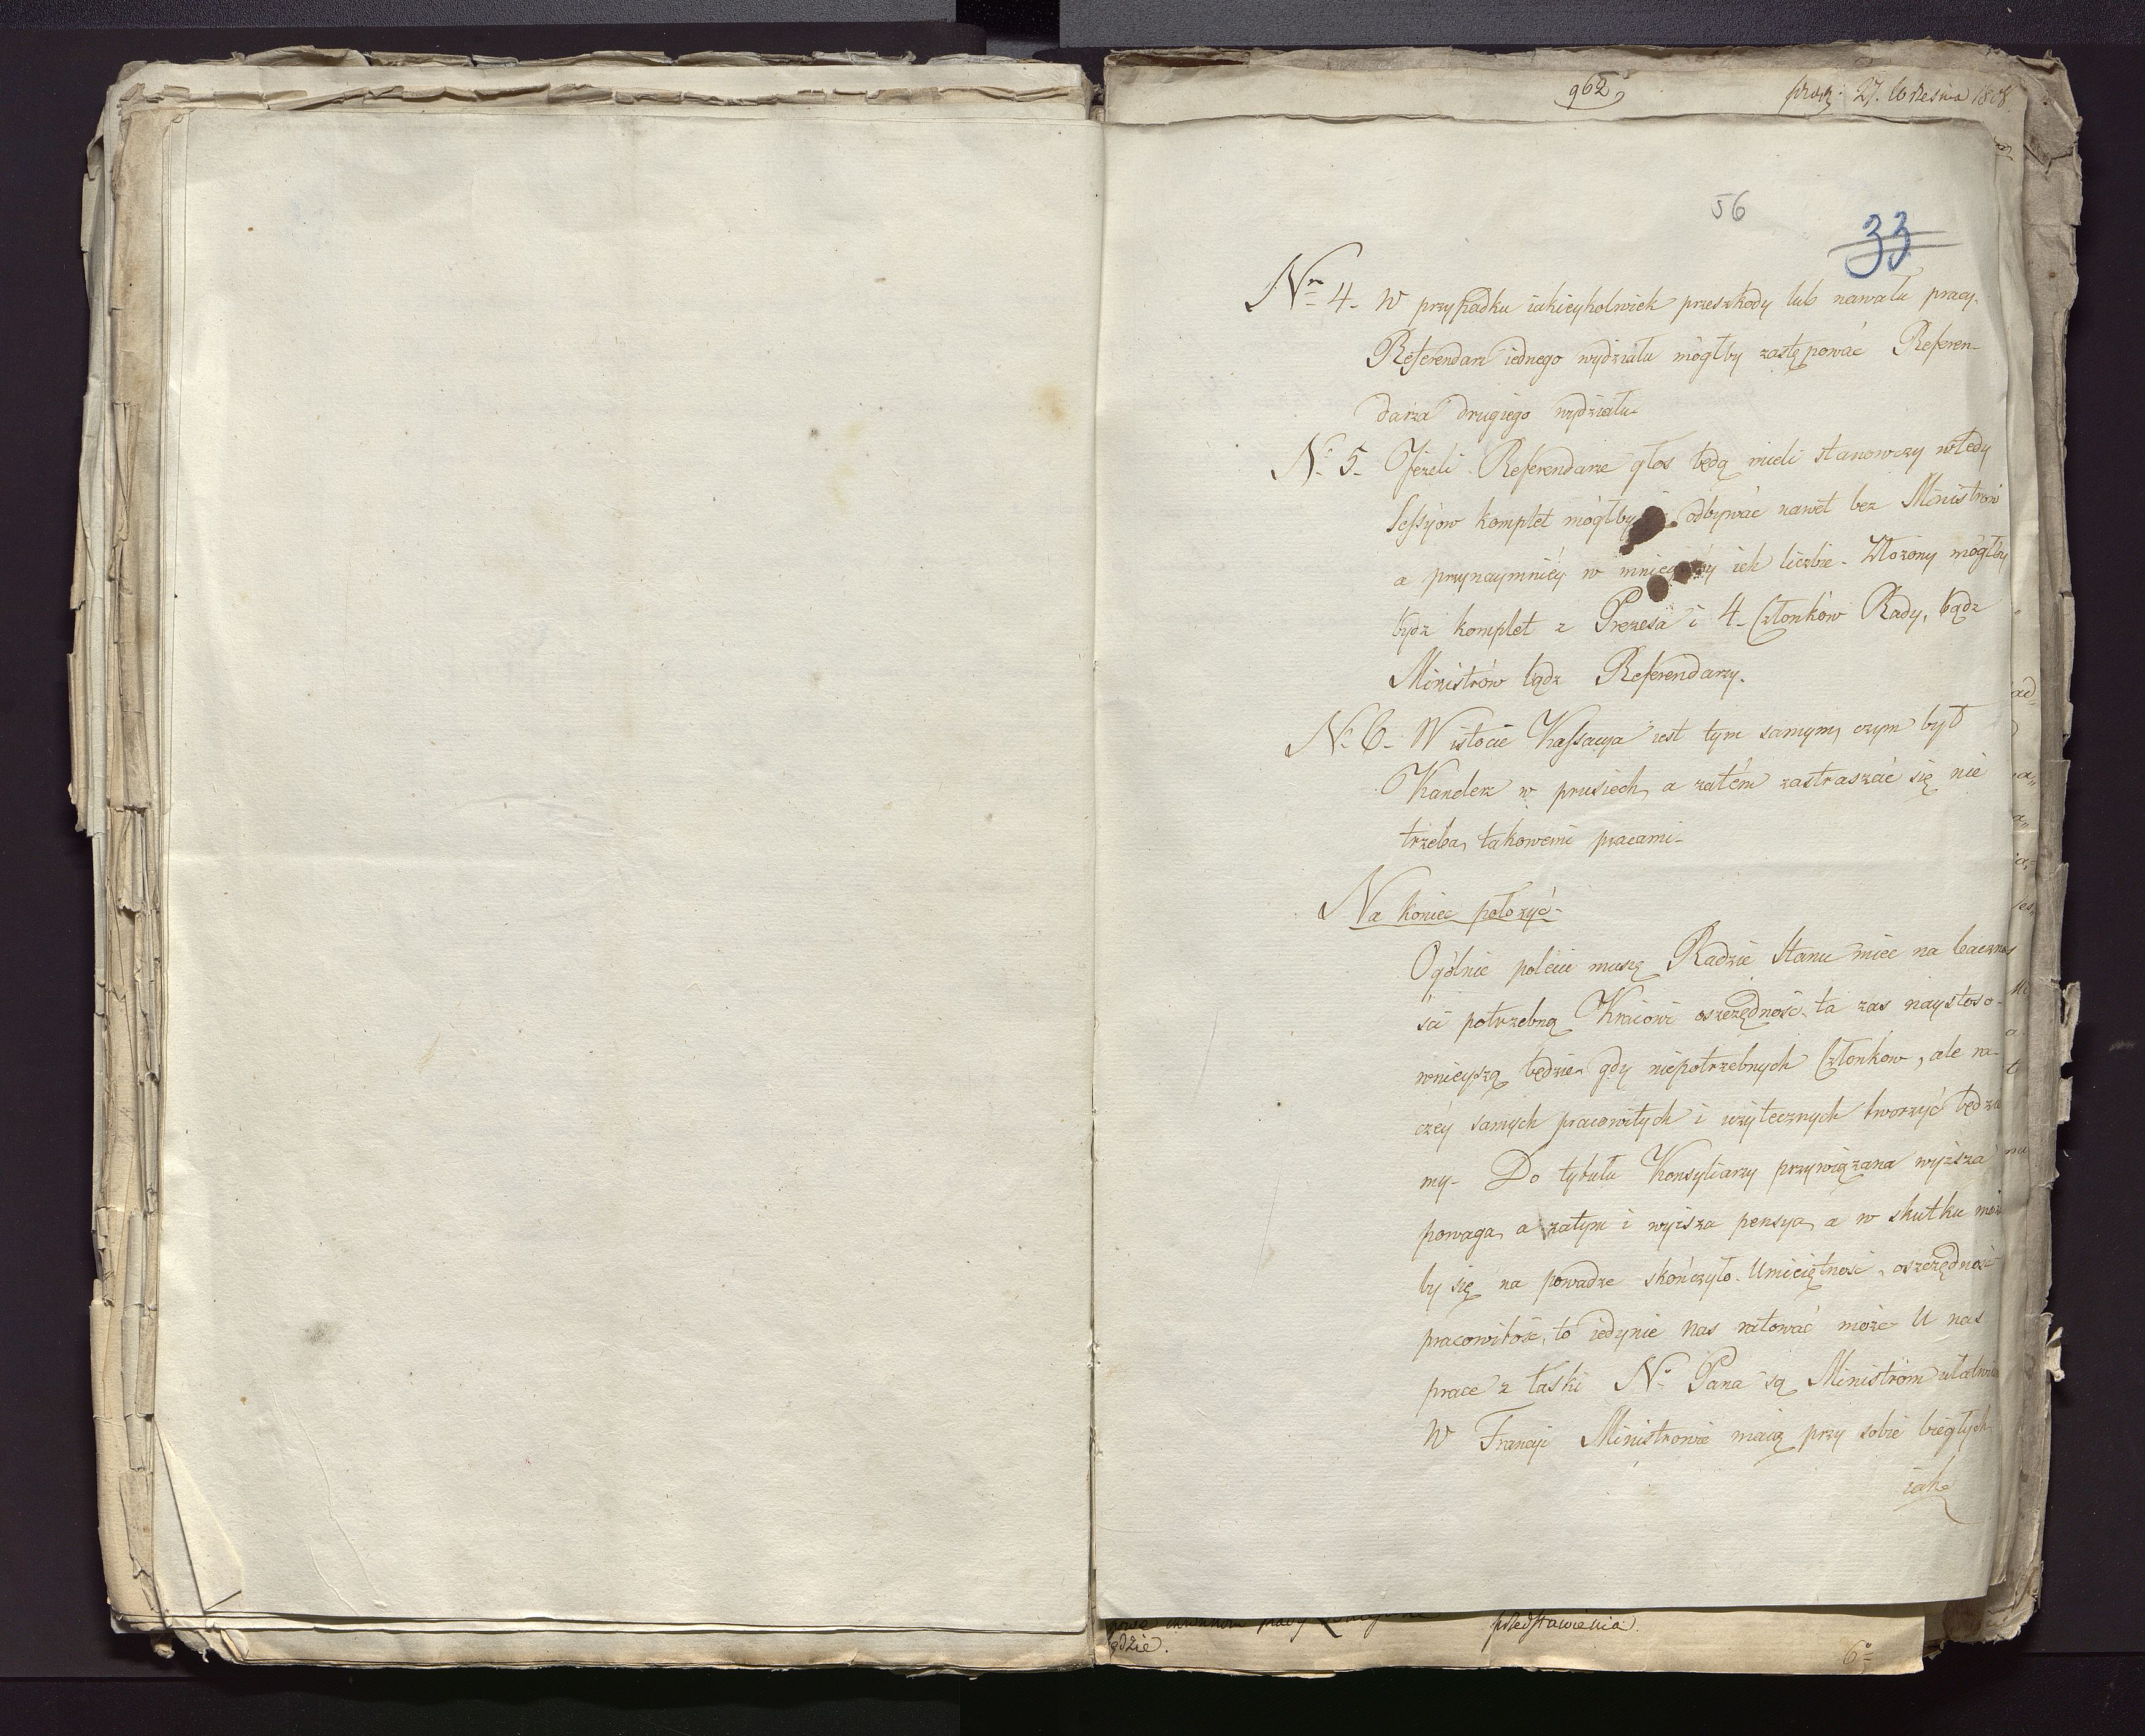 962,
27. Września 1808.
56
33
Nr 4. W przypadku iakieykolwiek przeszkody lub nawału pracy.
Referendarz iednego wydziału mógłby zastępować Referen-
darza drugiego wydziału
Nº 5. Jeżeli Referendarze głos będą mieli stanowczy wtedy
Sessyów komplet mógłby odbywać nawet bez Ministrów
a przynaymniéy w ich liczbie. Złożony mógłby
bydz komplet z Prezesa i 4. Członków Rady, bądz
Ministrów bądz Referendarzy.
Nº 6. W istocie Kassacya iest tym samym, czym był
Kanclerz w prusiech, a zatém zastraszać się nie
trzeba, takowemi pracami.
Na koniec położyć.
Ogólnie polecić muszę Radzie Stanu miec na bacznos
ści potrzebną Kraiowi oszczędność, ta zas naystoso-
wnieyszą będzie, gdy niepotrzebnych Członków, ale ra-
czéy samych pracowitych i użytecznych tworzyć będzie
my. Do tytułu Konsyliarzy przywiązana wyższa
powaga, a zatym i wyższa pensya, a w skutku
by się na powadze skończyło. Umieiętność, oszczędność
pracowitość, to iedynie nas ratować może U nas
prace z łaski Nº Pana są Ministrom
W Francyi Ministrowie maią przy sobie biegłych
iak
przedstawienia.
ędzie.
6º